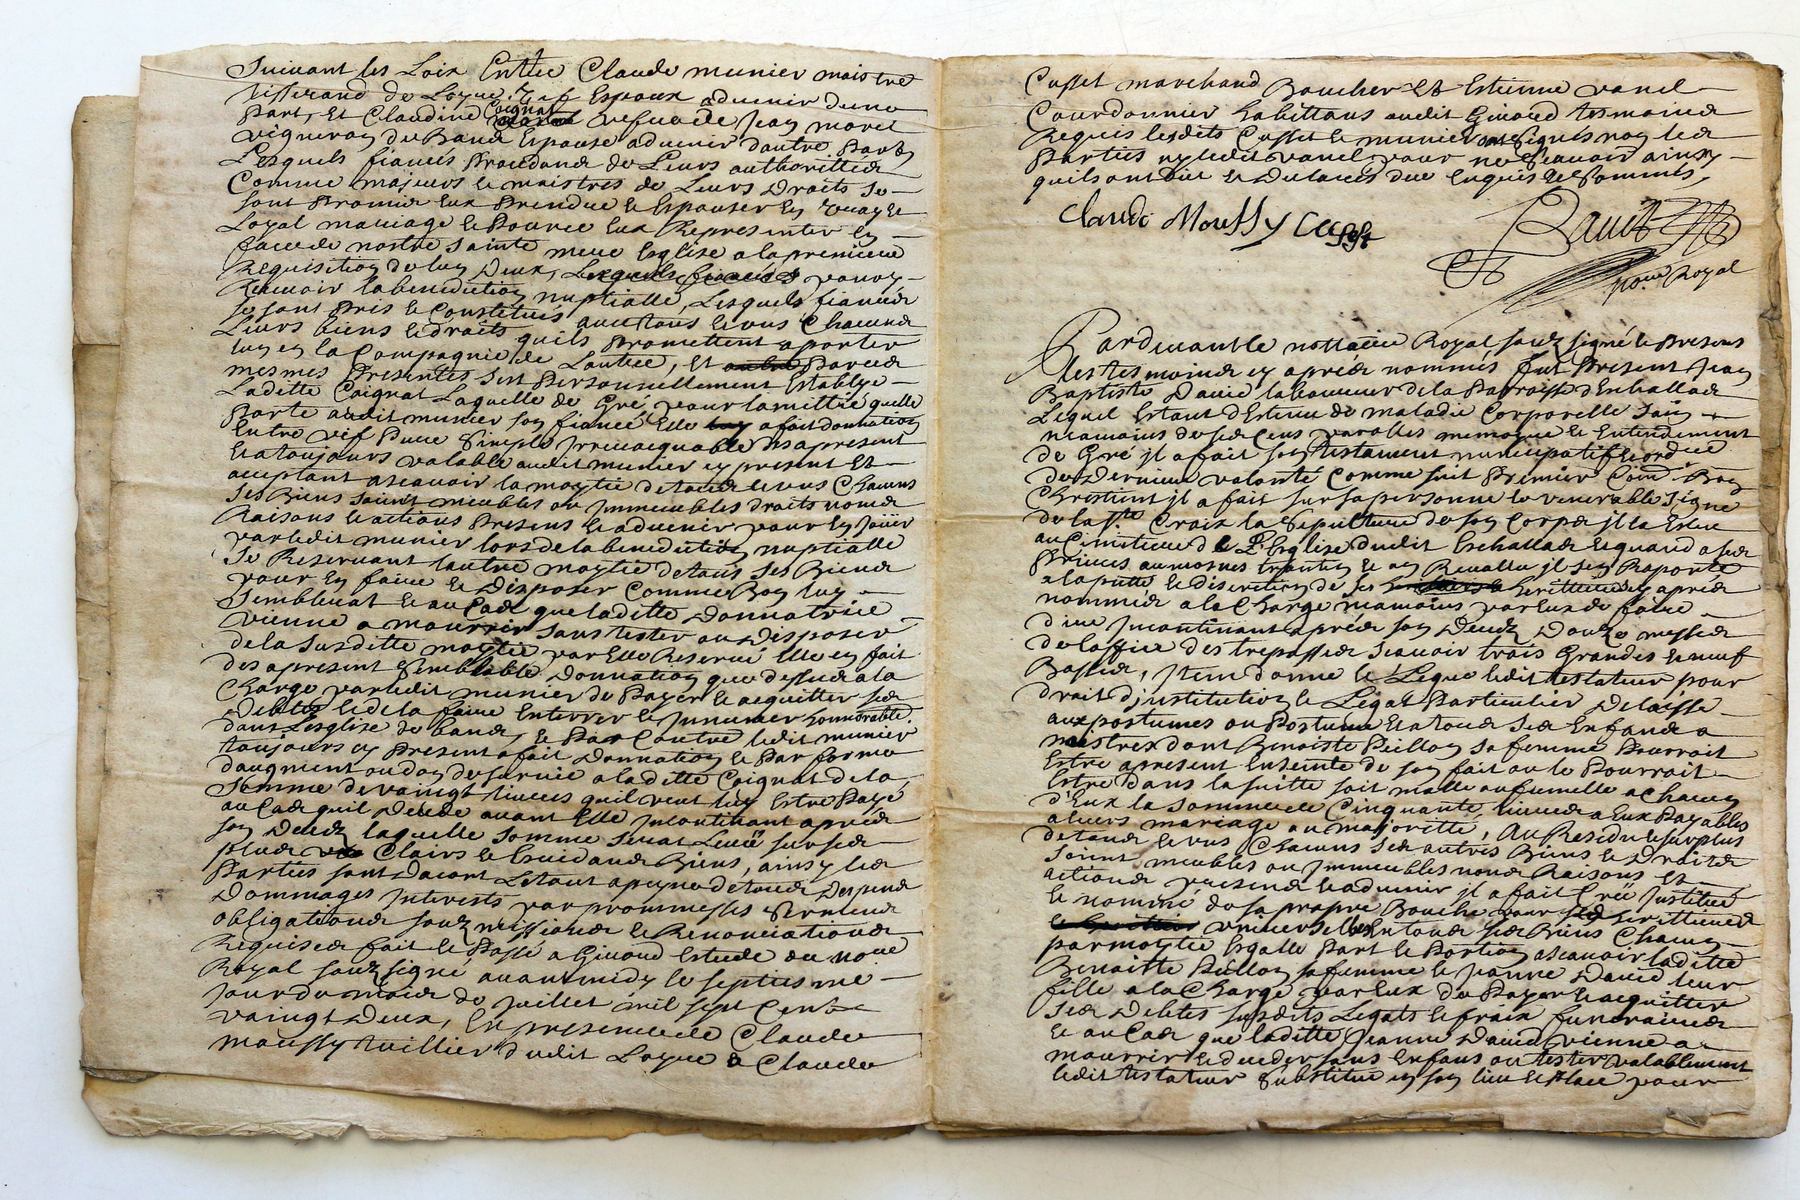 Suivant les Loix Entre Claude munier maistre
tisserand de Loyse Espoux aduenir dune
part, Et Claudine Coignat vefue de Jean moret
vigneron de Band Espouse aduenir dautre part
Lesquels fiancés procedand de Leurs authorittés
Comme majeurs & maistres de Leurs Droits se
sont promis Eux prendre & Espouser en vray &
Loyal mariage & pource Eux Representer en
face de nostre sainte mere Eglise a la premiere
Requisition de lun Deux, Lesquels fiancés pour y
Receuoir la benediction nuptialle, Lesquels fiancés
se sont pris & Constitués auec tous & vns Chacuns
Leurs biens & droits quils promettent aporter
lun en la Compagnie de Lautre, Et par Ces
mesmes presentes sest personnellement Establye
Laditte Coignat Laquelle de Gré pour lamittié quelle
porte audit munier son fiancé Elle a fait donnation
Entre vif pure simple jrreuocquable des apresent
& a toujours valable audit munier cy present Et
acceptant ascauoir la moytié de tous & vns Chacuns
ses Biens soient meubles ou jmmeubles droits noms
Raisons & actions presens & aduenir pour En jouir
par ledit munier lors de la benediction nuptialle
se Reseruant lautre moytié de tous ses Biens
pour En faire & Disposer Comme Bon luy
semblerat & au Cas que laditte donnatrice
vienne a mourrir sans tester ou Disposer
de la susditte moytié par Elle Reserué Elle en fait
des apresent semblable Donnation que dessus a la
Charge par ledit munier de payer & acquitter ses
Debtes & de la faire Enterrer & jnhumer honnorable.
dans Lesglise de band, & par Contre ledit munier
toujours cy present a fait Donnation & par forme
daugment ou don de suruie a laditte Coignat de la
somme de vaingt liures quil veut luy Estre payé
au Cas quil Decede auant Elle jncontinant apres
son Decedz laquelle somme serat Leué sur ses
plus Clairs & liquidands Biens, ainsy les
parties sont dacort Letout a peyne de tous Despens
Dommages jnterests par prommesses sermens
obligations souzmissions & Renonciations
Requises fait & passé a Giuord Estude du no.re
Royal souz signé auant midy le septieme
jour du mois de juillet mil sept Cent
vaingt Deux, En presence de Claude
moussy tuillier dudit Loyse & Claude
Cusset marchand Boucher & Estienne vanel
Courdonnier habittans audit Giuord tesmoins
Requis lesdits Cusset & munier ont signés non les
parties ny ledit vanel pour ne scauoir ainsy
quils ont dit & declarés due Enquis & sommés
Claude Moussy Cusset
Royal
Pardeuant le nottaire Royal souz signé & presens
Les tesmoins cy aprés nommés fut present Jean
Baptiste Dauid laboureur de la parroisse d'Eschallas
Lequel Estant d'Etenu de maladie Corporelle sain
neamoins de ses sens parolles memoire & Entendement
de Gré jl a fait son testament nuncupatif & ordre
de Derniere volonté Comme suit premier Come Bon
Chrestient jl a fait sur sa personne le venerable signe
de la s.te Croix la sepulture de son Corps jl la Eslue
au Cimitiere de L'Esglise dudit Eschallas & quand a ses
prieres aumosnes & jl sen Raporte
a la pitié & discretion de ses heritieres cy aprés
nommés a la Charge neamoins par Eux de faire
dire jncontinant aprés son Decedz Douze messes
de loffice des trepasses scauoir trois Grandes & neuf
Basses, jtem donne & Legue ledit testateur pour
droit d'jnstitution & Légat particulier delaisse
aux postumes ou postume & a tous ses Enfands a
naistres dont Benoiste Pullon sa femme pourroit
Estre apresent Enseinte de son fait ou le pourroit
Estre dans la suitte soit malle ou fumelle a chacun
d'Eux la somme de Cinquante liures a Eux payables
a leurs mariage ou majoritté, Au Residu & surplus
de tous & vns Chacuns ses autres Biens & Droits
soient meubles ou jmmeubles noms Raisons et
actions presens & aduenir jl a fait Créé jnstitué
& nommé de sa propre Bouche pour ses heritieres
vniuerselles En tous ses Biens Chacun
par moytié Esgalle part & portion ascauoir laditte
Benoitte Pullon sa femme & Jeanne Dauid leur
fille a la Charge par Eux de payer & acquitter
ses debtes susdits Légats & fraix funeraires
& au Cas que laditte Jeanne Dauid vienne a
mourrir & deceder sans Enfans ou tester valablement
ledit testateur substitue en son lieu & place pour